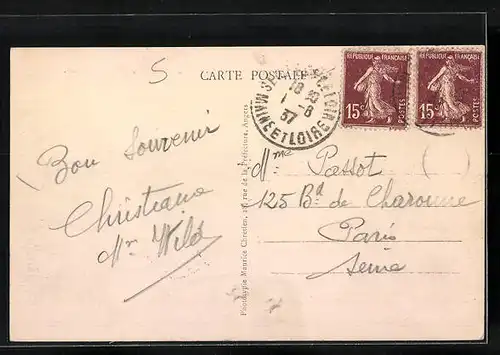 5
CARTE POSTALE
RÉPUBLIQUE FRANÇAISE
15c
POSTES
RÉPUBLIQUE FRANÇAISE
15c
POSTES
18
1 - 8
37
MAINE ET LOIRE
Bon Souvenir
Christiane
Mr Wild
Phototypie Maurice Chrétien, rue de la Préfecture, Angers
Mme Passot
125 Bd de Charonne
Paris
Seine